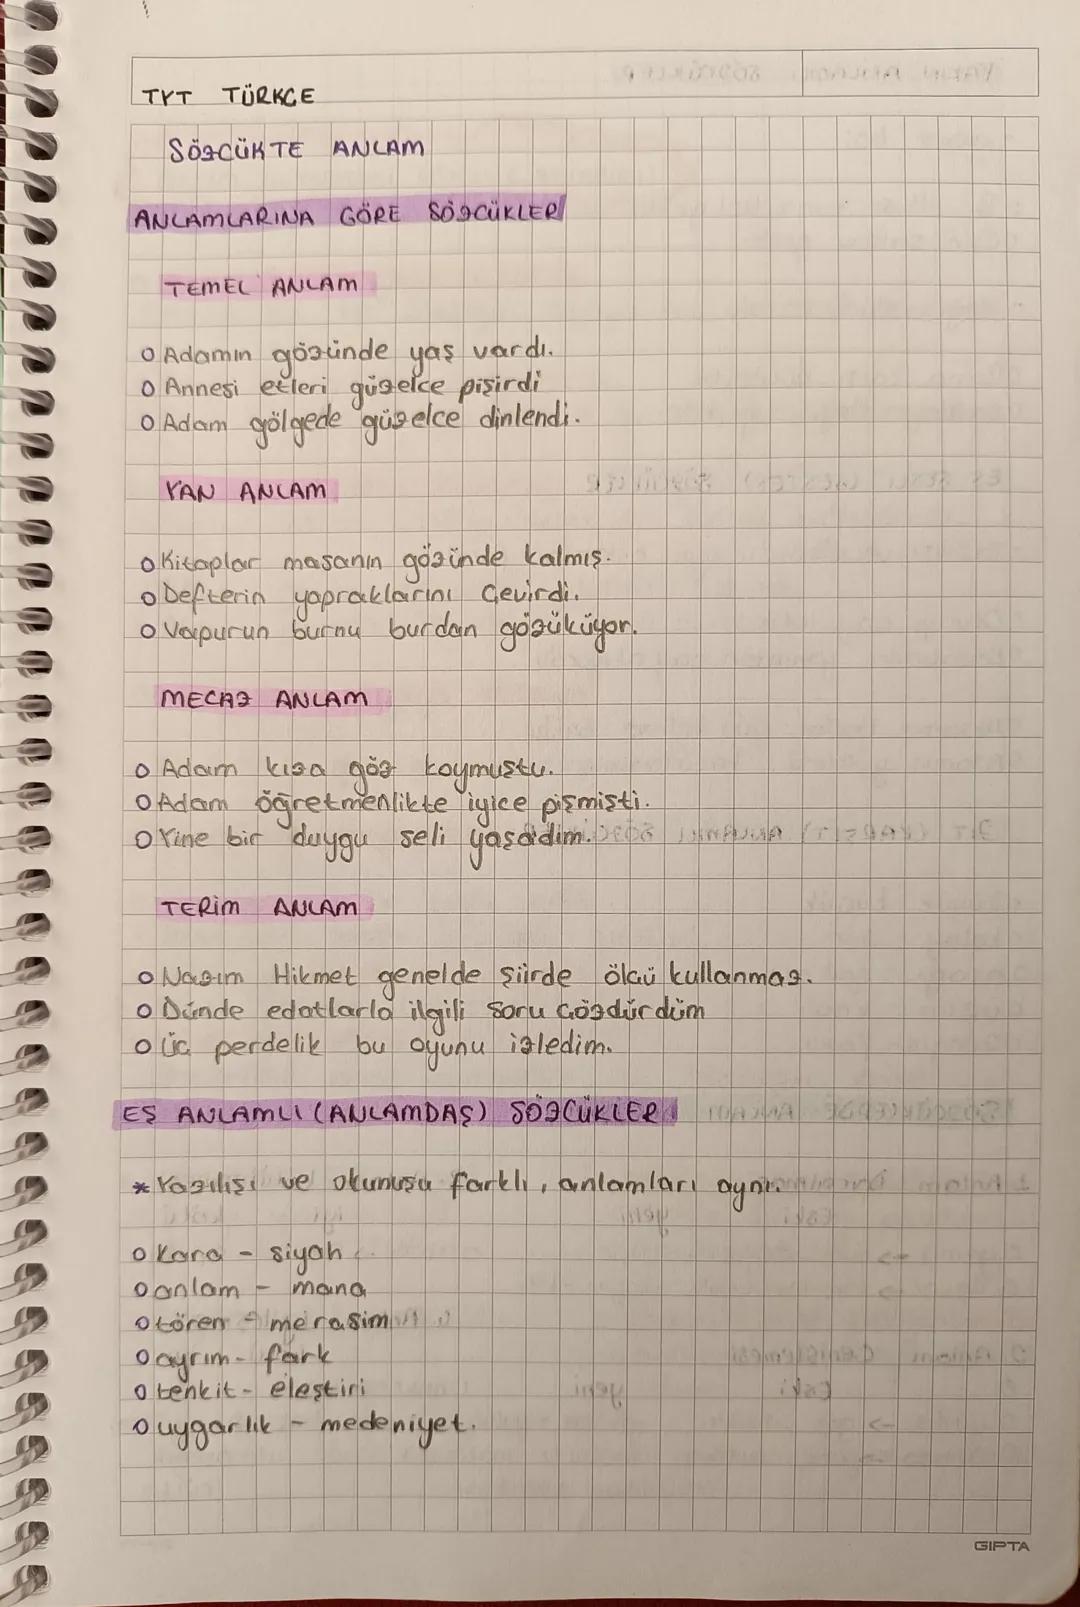 TYT TÜRKÇE
SÖZCÜKTE ANLAM
ANLAMLARINA GÖRE SÖZCÜKLER
TEMEL ANLAM
o Adamın gözünde yaş vardı.
o Annesi etleri güzelce pişirdi
o Adam gölgede güzelce dinlendi.
YAN ANLAM
o Kitaplar masanın gözünde kalmış.
o Defterin yapraklarını Çevirdi.
o Vapurun burnu burdan gözüküyor.
MECAZ ANLAM
o Adam kıza göz koymuştu.
o Adam öğretmenlikte iyice pişmişti.
o Yine bir duygu seli yaşadım.
TERİM ANLAM
o Nazım Hikmet genelde şiirde ölçü kullanmaz.
o Dünde edatlarla ilgili soru Çözdürdüm
o Üç perdelik bu oyunu izledim.
EŞ ANLAMLI (ANLAMDAŞ) SÖZCÜKLER
* Yazılışı ve okunuşu farklı, anlamları aynı.
o kara - siyah
o anlam - mana
o tören - merasim
o ayrım - fark
o tenkit - eleştiri
o uygarlık - medeniyet.
GIPTA